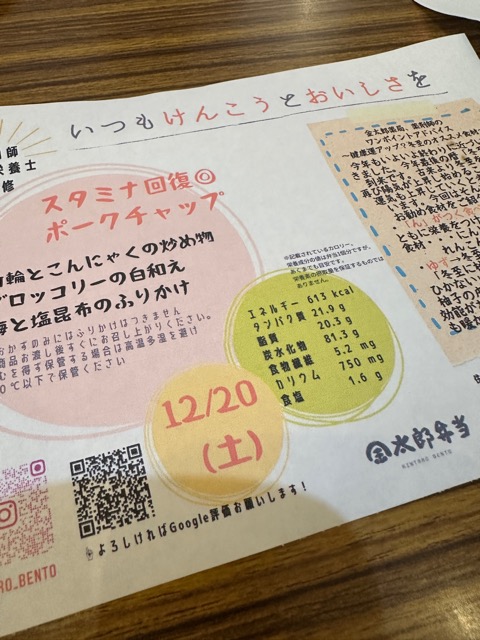 いつもけんこうとおいしさを
師
養士
修
スタミナ回復◎
ポークチャップ
輪とこんにゃくの炒め物
ブロッコリーの白和え
と塩昆布のふりかけ
おかずのみにはふりかけはつきません
商品お渡し後すぐにお召し上がりください。
を得す保管する場合は高温多湿を避け
0℃以下で保管ください
※記載されているカロリー、
栄養成分の値は弁当1個分ですが、
あくまでも目安です。
栄養素の摂取量を保証するものでは
ありません。
エネルギー 613 kcal
タンパク質 21.9 g
脂質 20.3 g
炭水化物 81.3 g
食物繊維 5.2 mg
カリウム 750 mg
食塩 1.6 g
12/20
(土)
金太郎薬局、薬剤師の
ワンポイントアドバイス
～健康運アップ？冬至のオススメ食材
今年もいよいよ終わりに近づ
きました。
到来です。
お勧め食材をご紹
「ん」がつく食
ともに栄養をつけ
れんこ
ゆず
「冬至に
ひかない
柚子の
効能が
も暖
金太郎弁当
KINTARO BENTO
RO_BENTO
よろしければGoogle評価お願いします！